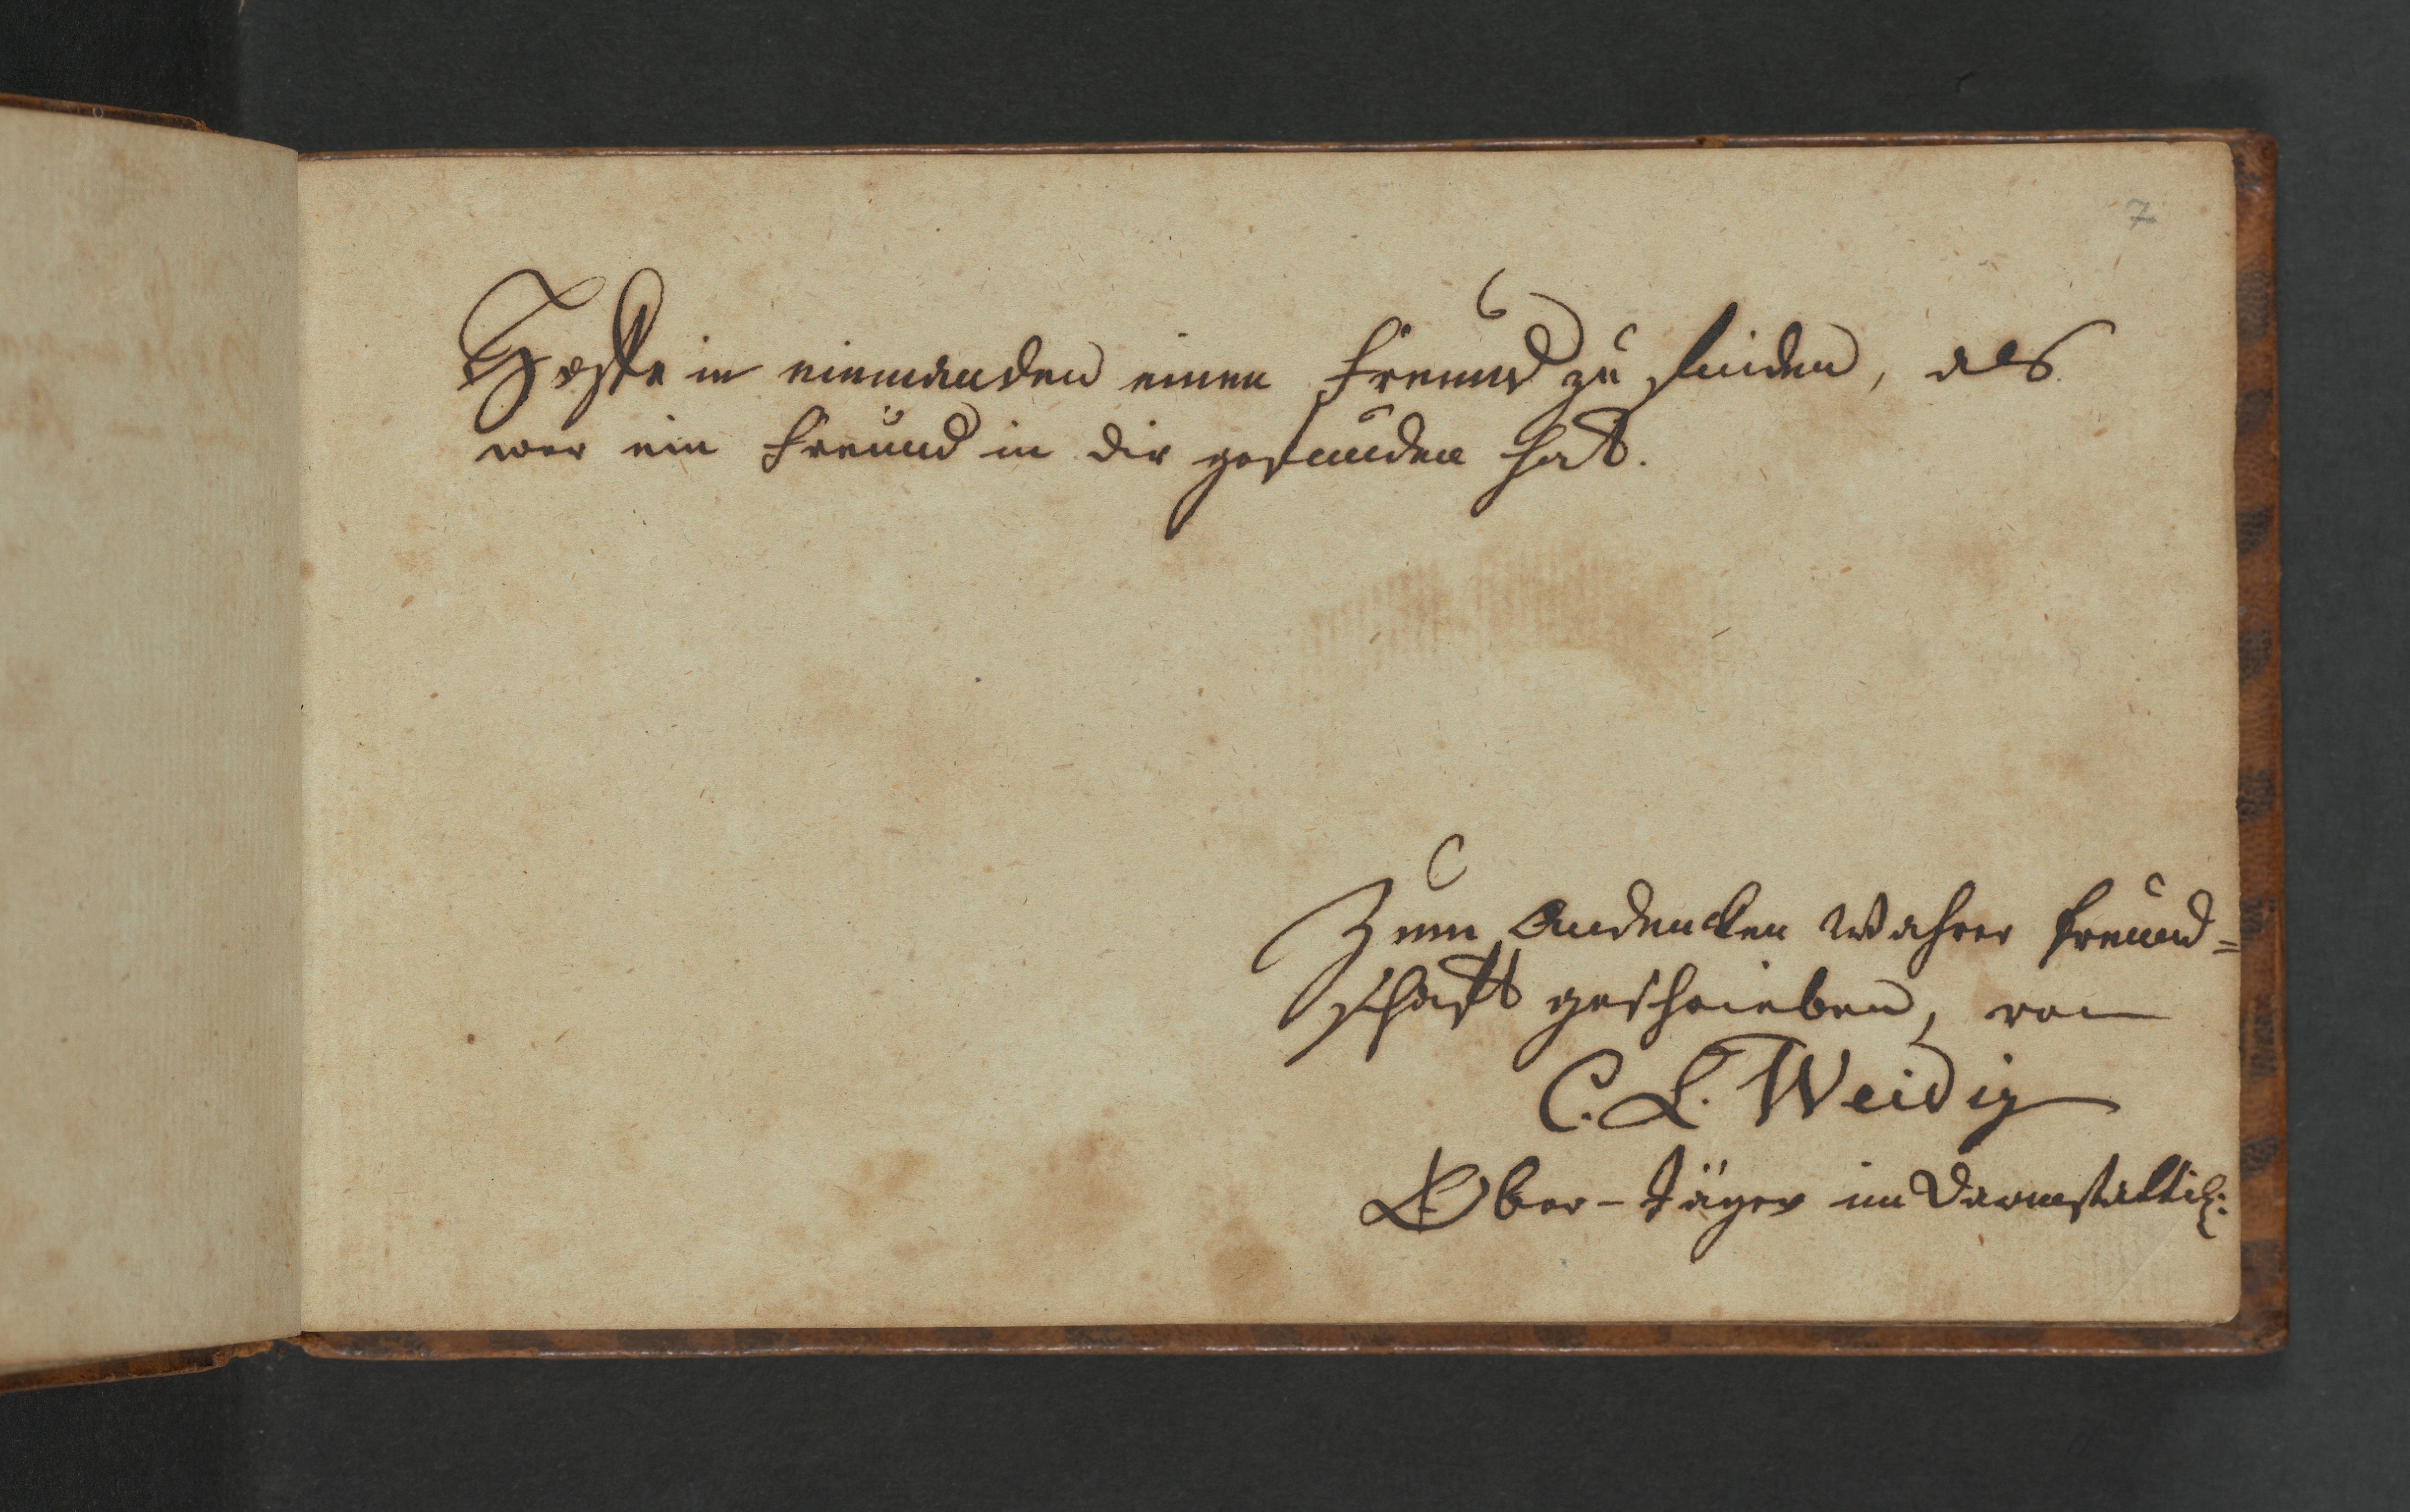 7
Hoffe in niemanden einen Freund zu finden, als
wer ein Freund in dir gefunden hat.
Zum Andencken Wahrer Freund=
schafft geschrieben, von
C. L. Weidig
Ober-Jäger im Darmstättisch: